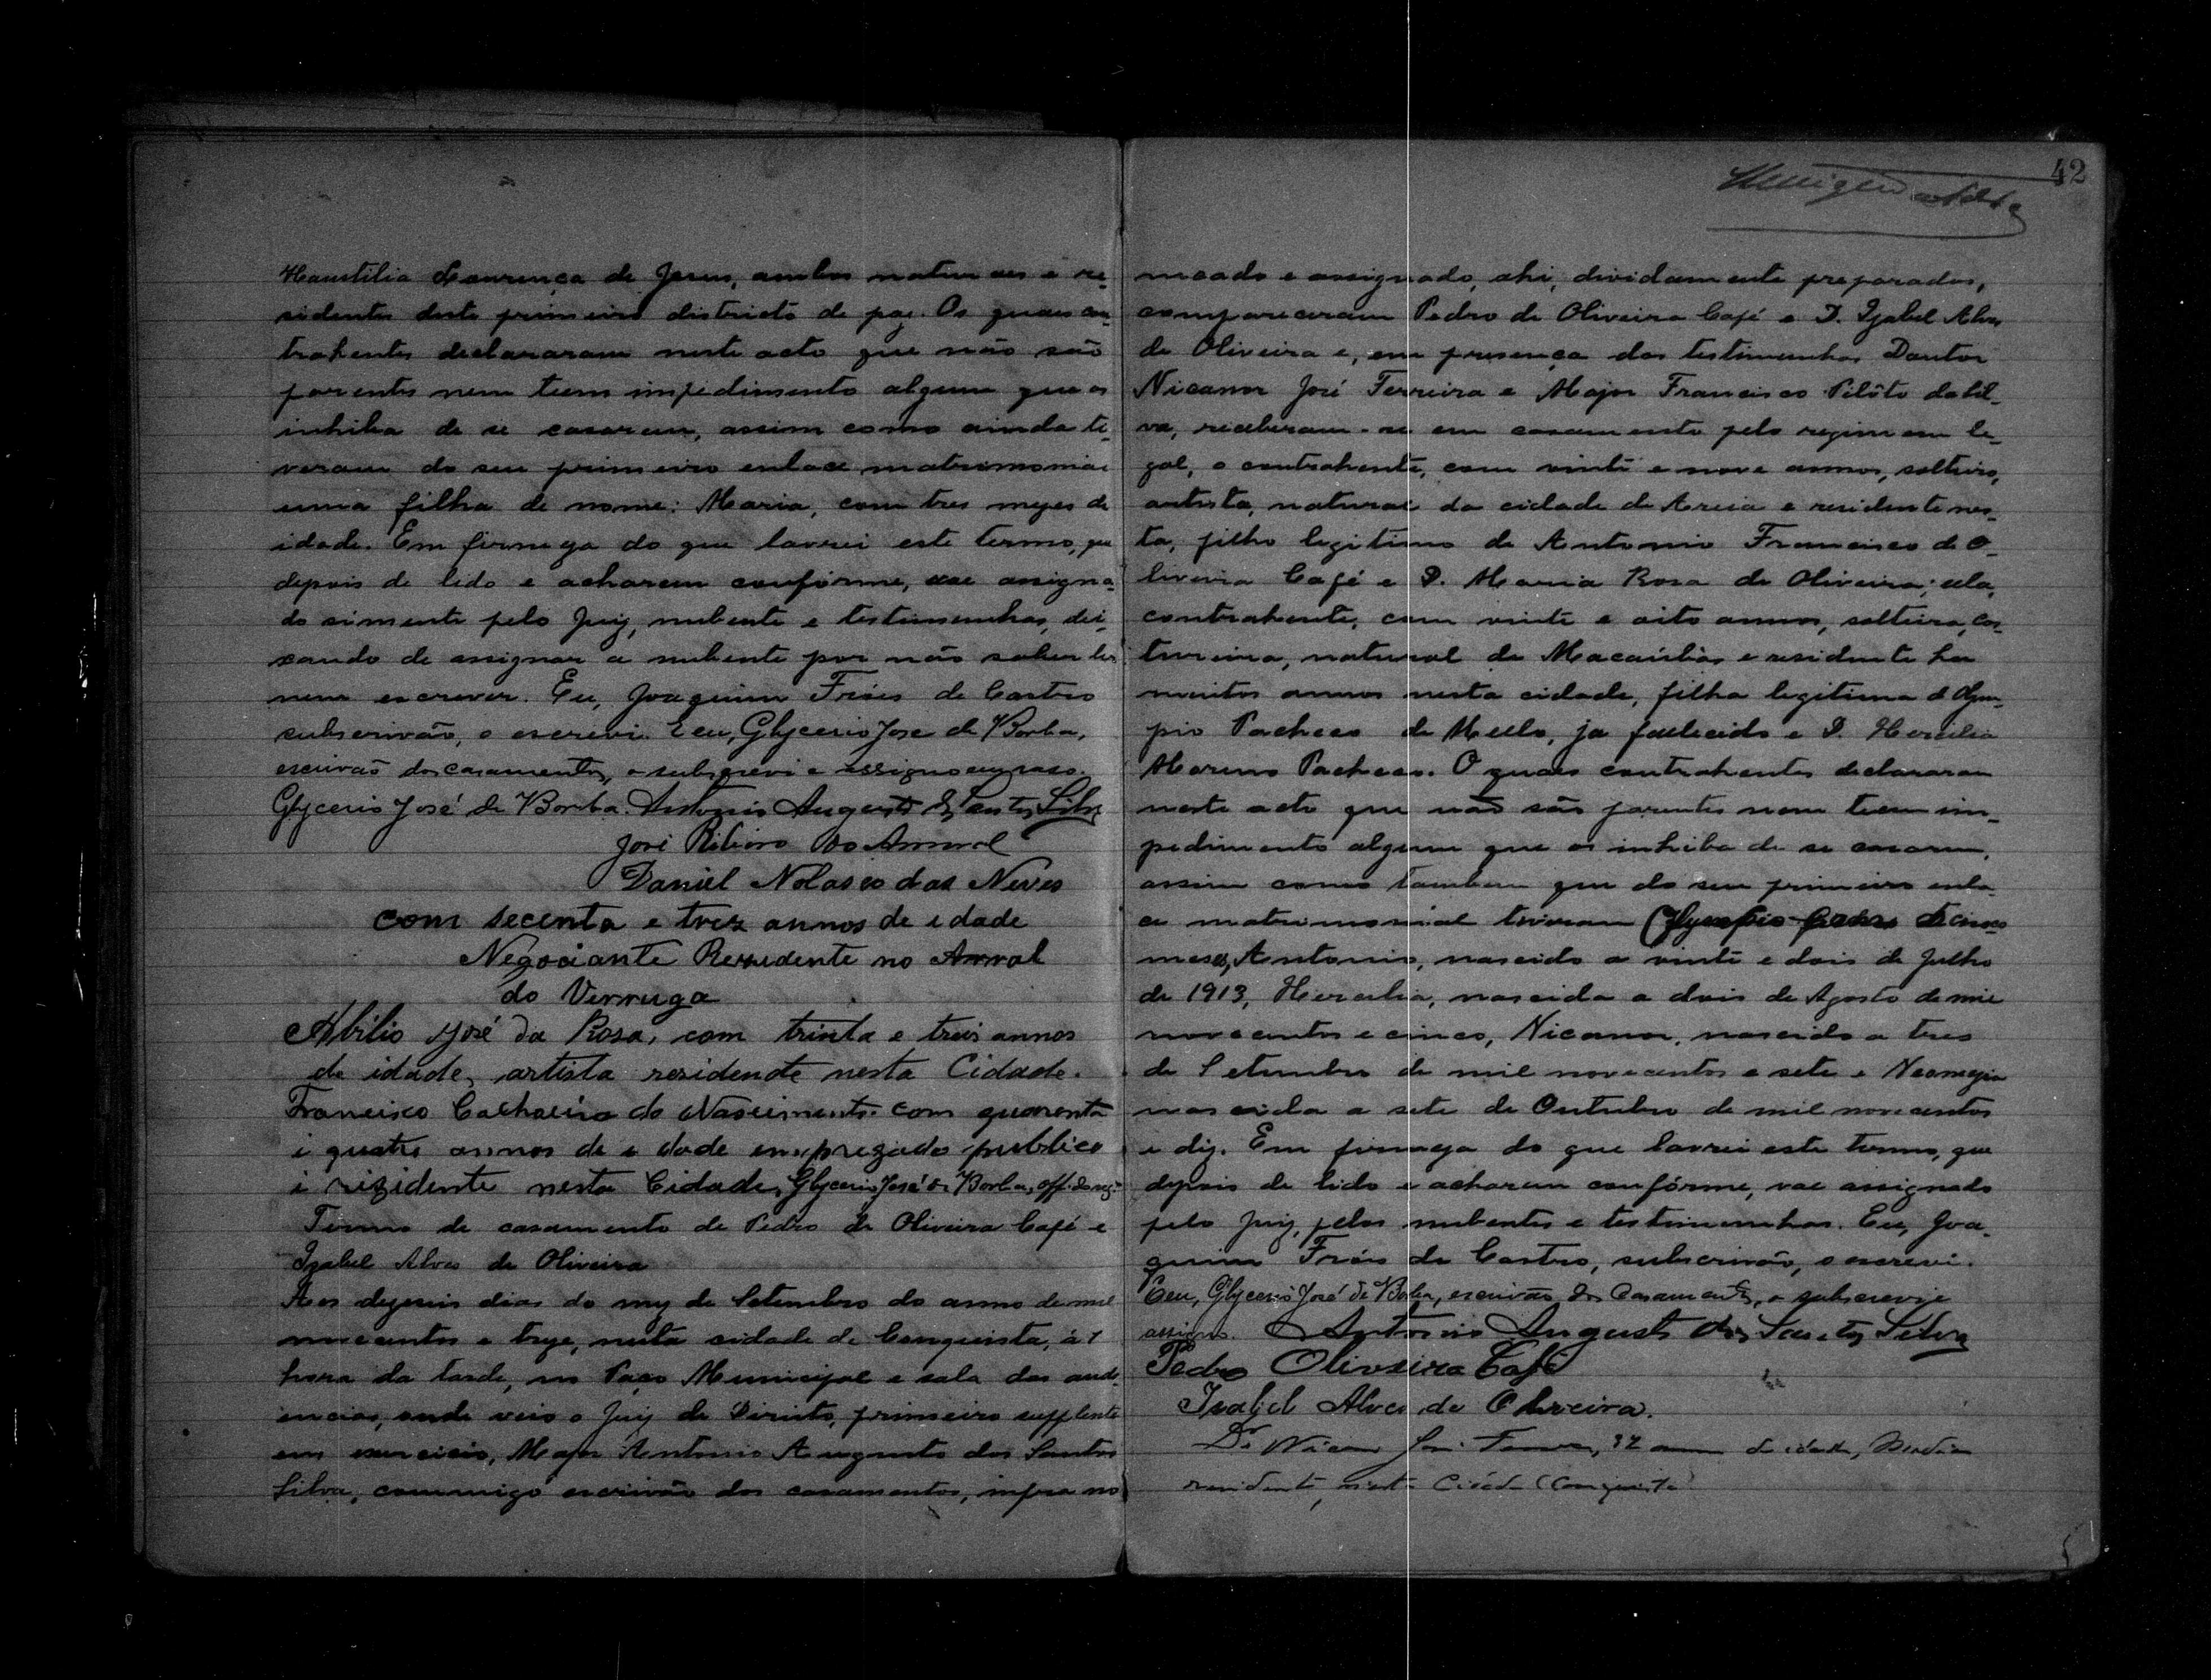 Laurença de Jesus, ambos naturaes e re-
sidentes deste primeiro districto de paz. Os quaes con-
trahentes declararam neste acto que não são
parentes nem teem impedimento algum que os
inhiba de se casarem, assim como ainda ti-
veram do seu primeiro enlace matrimonial
uma filha de nome: Maria, com tres mezes de
idade. Em firmeza do que lavrei este termo, que
depois de lido e acharem conforme, vae assigna-
do sómente pelo Juiz, nubente e testimunhas, dei-
xando de assignar a nubente por não saber ler
nem escrever. Eu, Joaquim Fróes de Castro
subscrivão, o escrevi. E eu, Glycerio José de Borba,
escrivão dos casamentos, o subscrevi e assigno em raso.
Glycerio José de Borba. Antonio Augusto dos Santos Silva
José Ribeiro do Amaral
Daniel Nolasco das Neves
com secenta e trez annos de idade
Negociante Rezidente no Arraial
do Verruga
Abilio José da Rosa, com trinta e treis annos
de idade, artista residente nesta Cidade.
Francisco do Nascimento com quarenta
i quatro annos de idade empregado publico
i rizidente nesta Cidade, Glycerio José de Borba, off. do reg.
Termo de casamento de Pedro de Oliveira Café e
Izabel Alves de Oliveira
Aos dezeseis dias do mez de Setembro do anno de mil
novecentos e treze, nesta cidade de Conquista, á 1
hora da tarde, no Paço Municipal e sala das audi-
encias, onde veio o Juiz de Direito, primeiro supplente
em exercicio, Major Antonio Augusto dos Santos
Silva, commigo escrivão dos casamentos, infra no
42
meado e assignado, ahi, dividamente preparados,
compareceram Pedro de Oliveira Café e D. Izabel Alves
de Oliveira e, em presença das testimunhas Doutor
Nicanor José Ferreira e Major Francisco Pilôto da Sil-
va, receberam-se em casamento pelo regimem le-
gal, o contrahente, com vinte e nove annos, solteiro,
artista, natural da cidade de Areia e residente nes-
ta, filho legitimo de Antonio Francisco de O-
liveira Café e D. Maria Rosa de Oliveira; ella,
contrahente, com vinte e oito annos, solteira, cos-
tureira, natural de Macaúbas e residente ha
muitos annos nesta cidade, filha legitima de Olym-
pio Pacheco de Mello, ja fallecido e D. Hercilia
Moreno Pacheco. O quaes contrahentes declararam
neste acto que não são parentes nem teem im-
pedimento algum que os inhiba de se casarem,
assim como tambem que do seu primeiro enla-
ce matrimonial tiveram Olympio de cinco
meses, Antonio, nascido a vinte e dois de Julho
de 1913, Hercilia, nascida a dois de Agosto de mil
novecentos e cinco, Nicanor, nascido a tres
de Setembro de mil novecentos e sete e
nascida a sete de Outubro de mil novecentos
e diz. Em firmeza do que lavrei este termo, que
depois de lido e acharem confórme, vae assignado
pelo Juiz, pelos nubentes e testimunhas. Eu, Joa-
quim Fróes de Castro, subscrivão, o escrevi.
E eu, Glycerio José de Borba, escrivão dos Casamentos, o subscrevi e
assigno. Antonio Augusto dos Santos Silva
Pedro Oliveira Café
Izabel Alves de Oliveira.
Dr. Nicanor José Ferreira, annos de idade, Medico
residente nesta Cidade (Conquista)